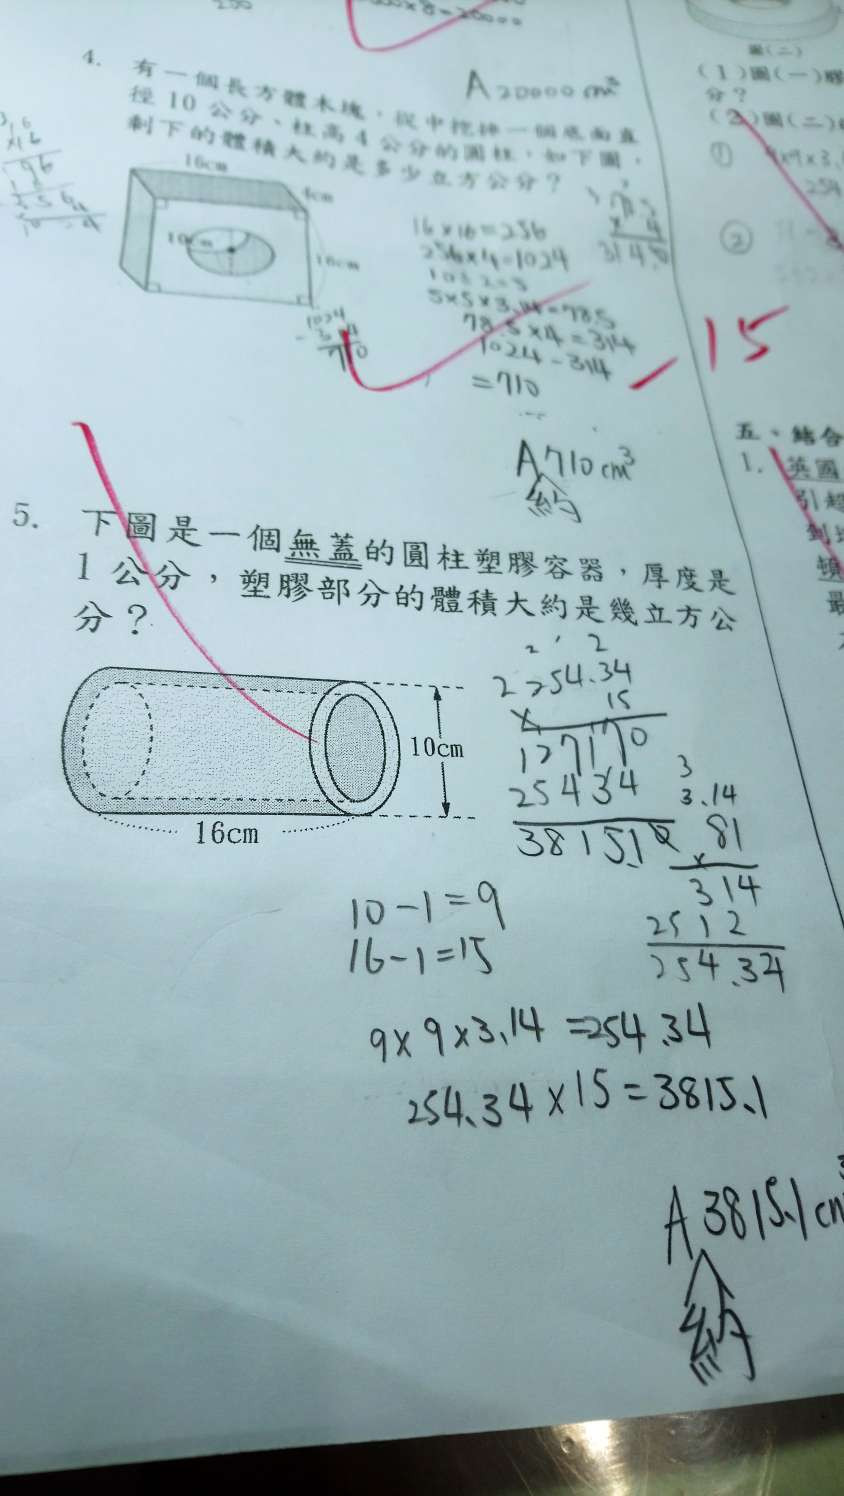 A 20000 cm³
4. 有一個長方體木塊，從中挖掉一個底面直
徑 10 公分、柱高 4 公分的圓柱，如下圖，
剩下的體積大約是多少立方公分？
16cm
4cm
10cm
16cm
16×16=256
256×4=1024
10÷2=5
5×5×3.14=785
78.5×4=314
1024-314
=710
1024
A 710 cm³
約
-15
(1)圖(一)膠
分？
(2)圖(二)
①
②
圖(二)
254
五、結合
1. 英國
引起
5. 下圖是一個無蓋的圓柱塑膠容器，厚度是
1 公分，塑膠部分的體積大約是幾立方公
分？
10cm
16cm
254.34
15
127170
25434
38151
3.14
81
314
2512
254.34
10-1=9
16-1=15
9×9×3.14=254.34
254.34×15=3815.1
A 3815.1 cm³
約